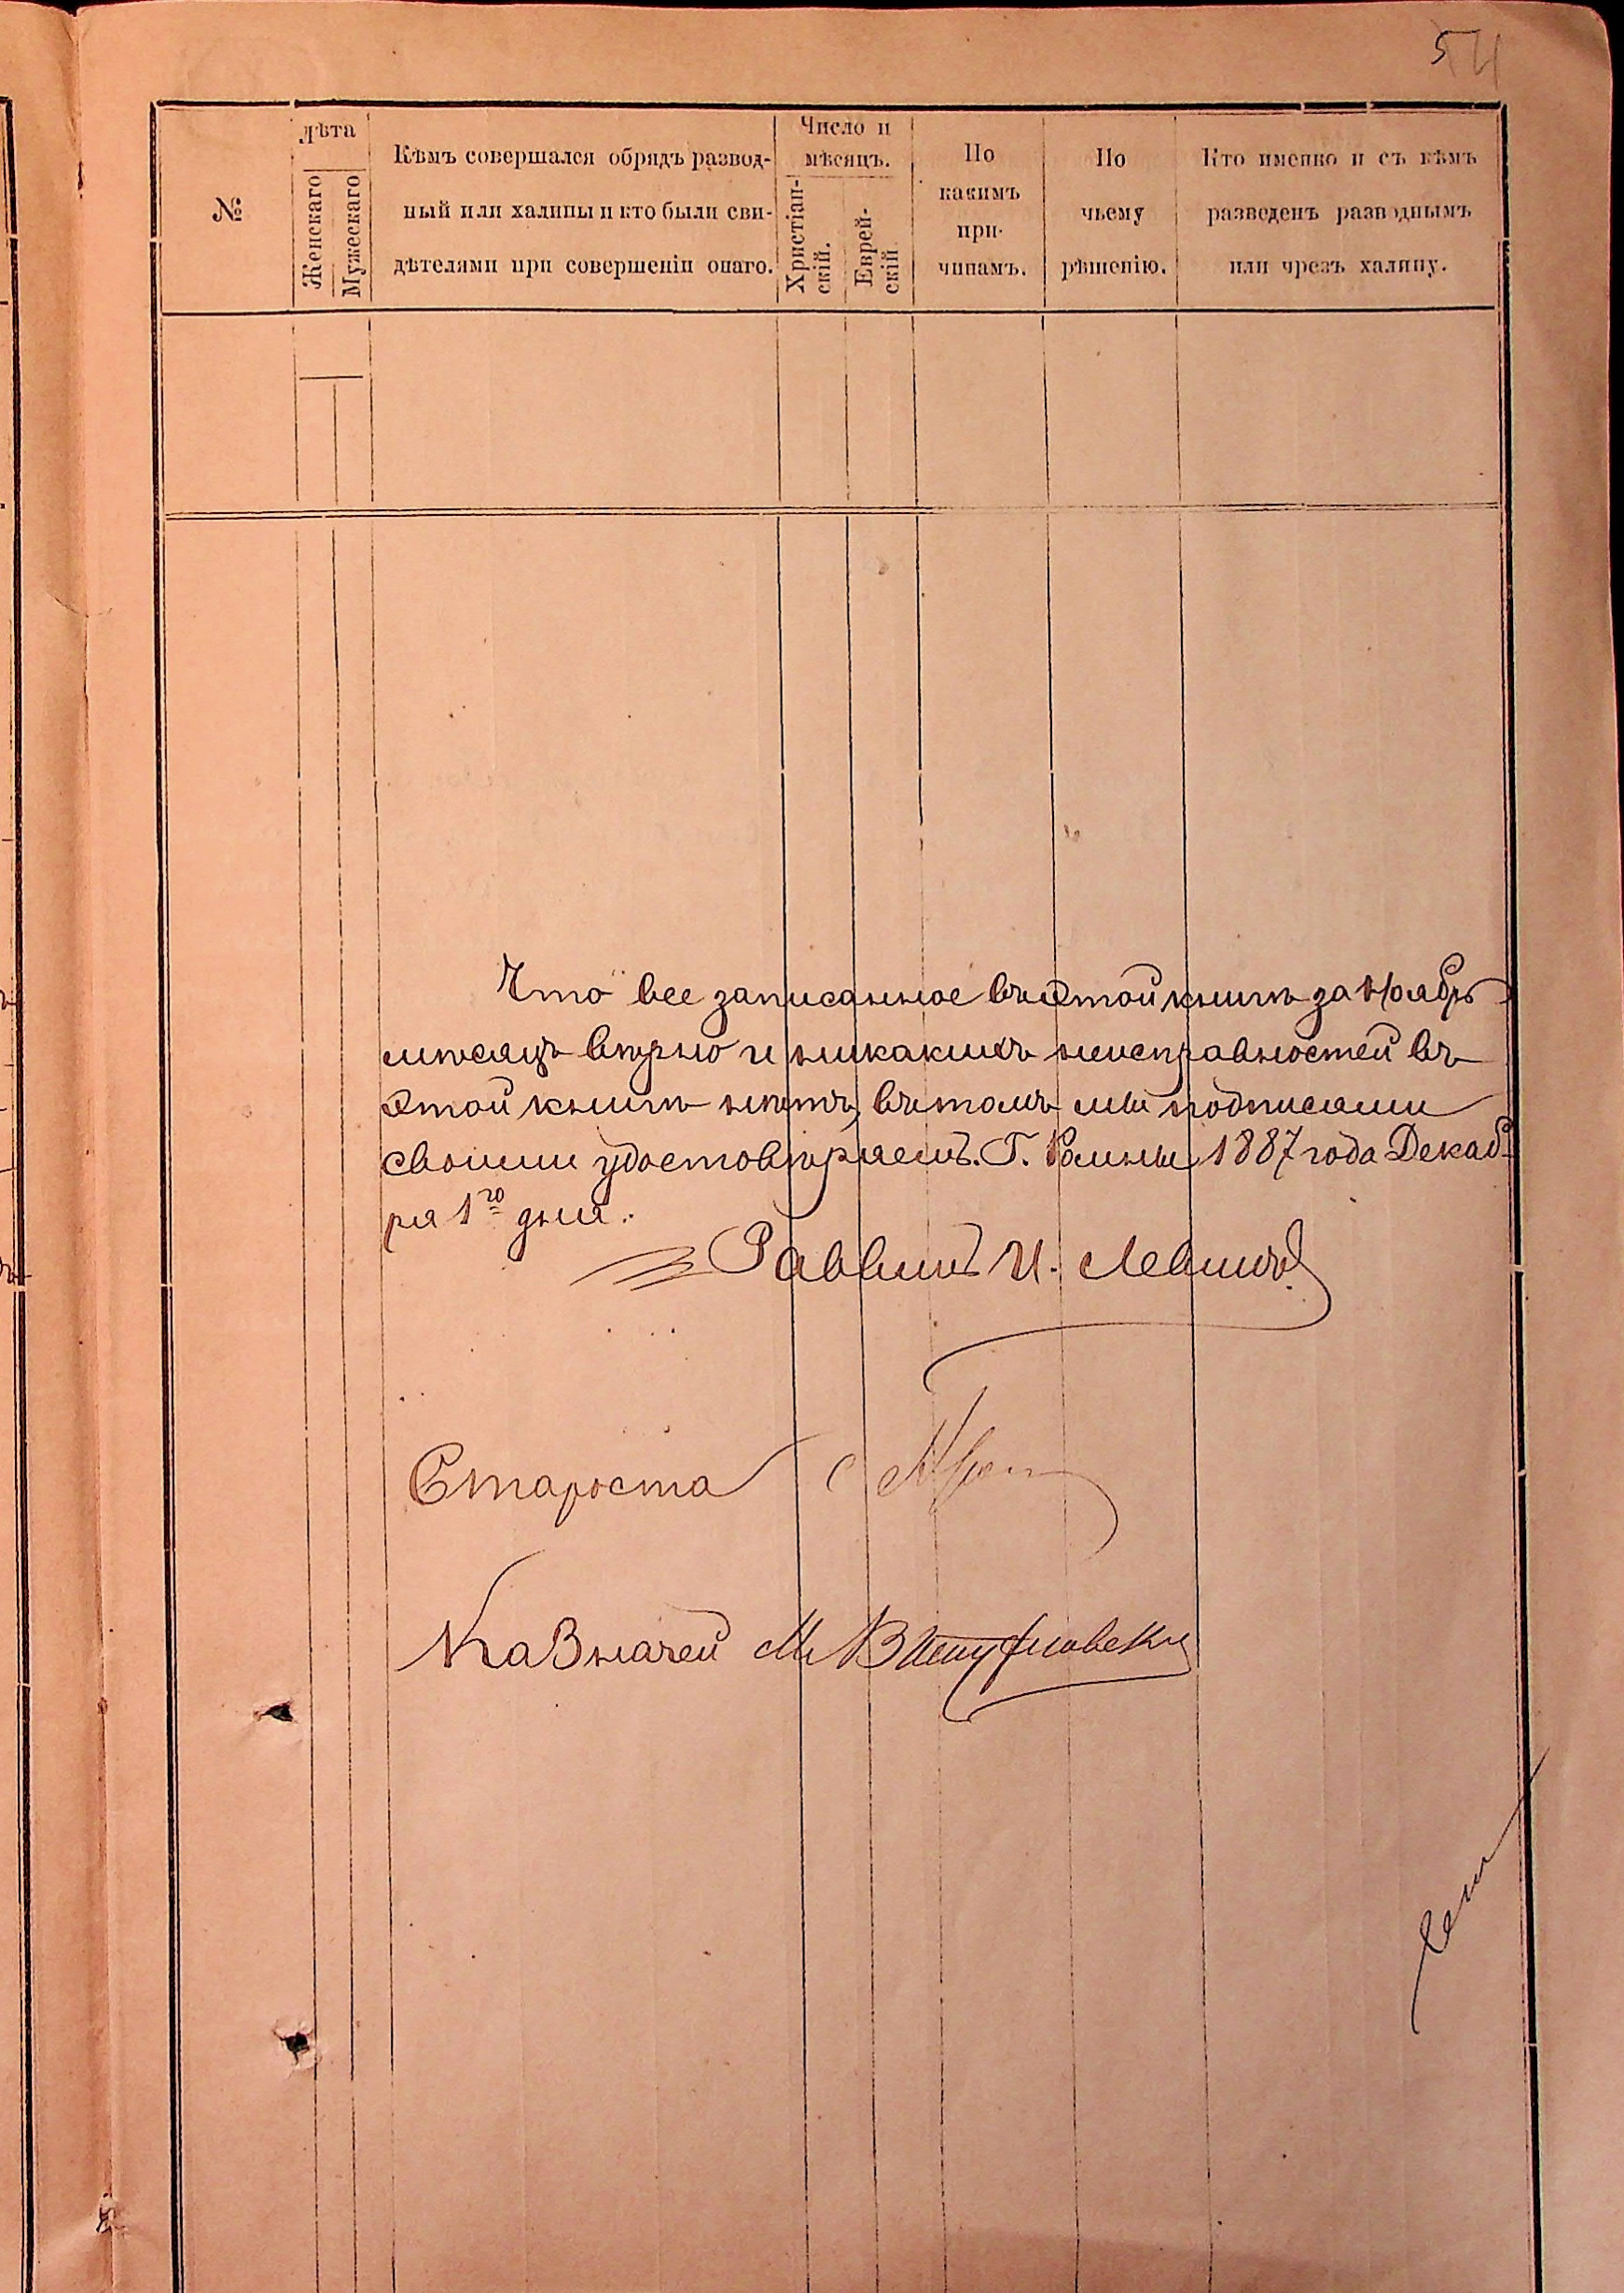 54
№
Лѣта
Женскаго
Мужескаго
Кѣмъ совершался обрядъ развод-
ный или халицы и кто были сви-
дѣтелями при совершеніи онаго.
Число и
мѣсяцъ.
Христіан-
скій.
Еврей-
скій
По
какимъ
при-
чинамъ.
По
чьему
рѣшенію.
Кто именно и съ кѣмъ
разведенъ разводнымъ
или чрезъ халицу.
Что все записанное въ этой книгѣ за Ноябрь
мѣсяцъ вѣрно и никакихъ неисправностей въ
этой книгѣ нѣтъ, въ томъ мы подписями
своими удостовѣряемъ. Г. Ромны 1887 года Декаб-
ря 1го дня.
Раввинъ И. Левинъ
Староста
Казначей М